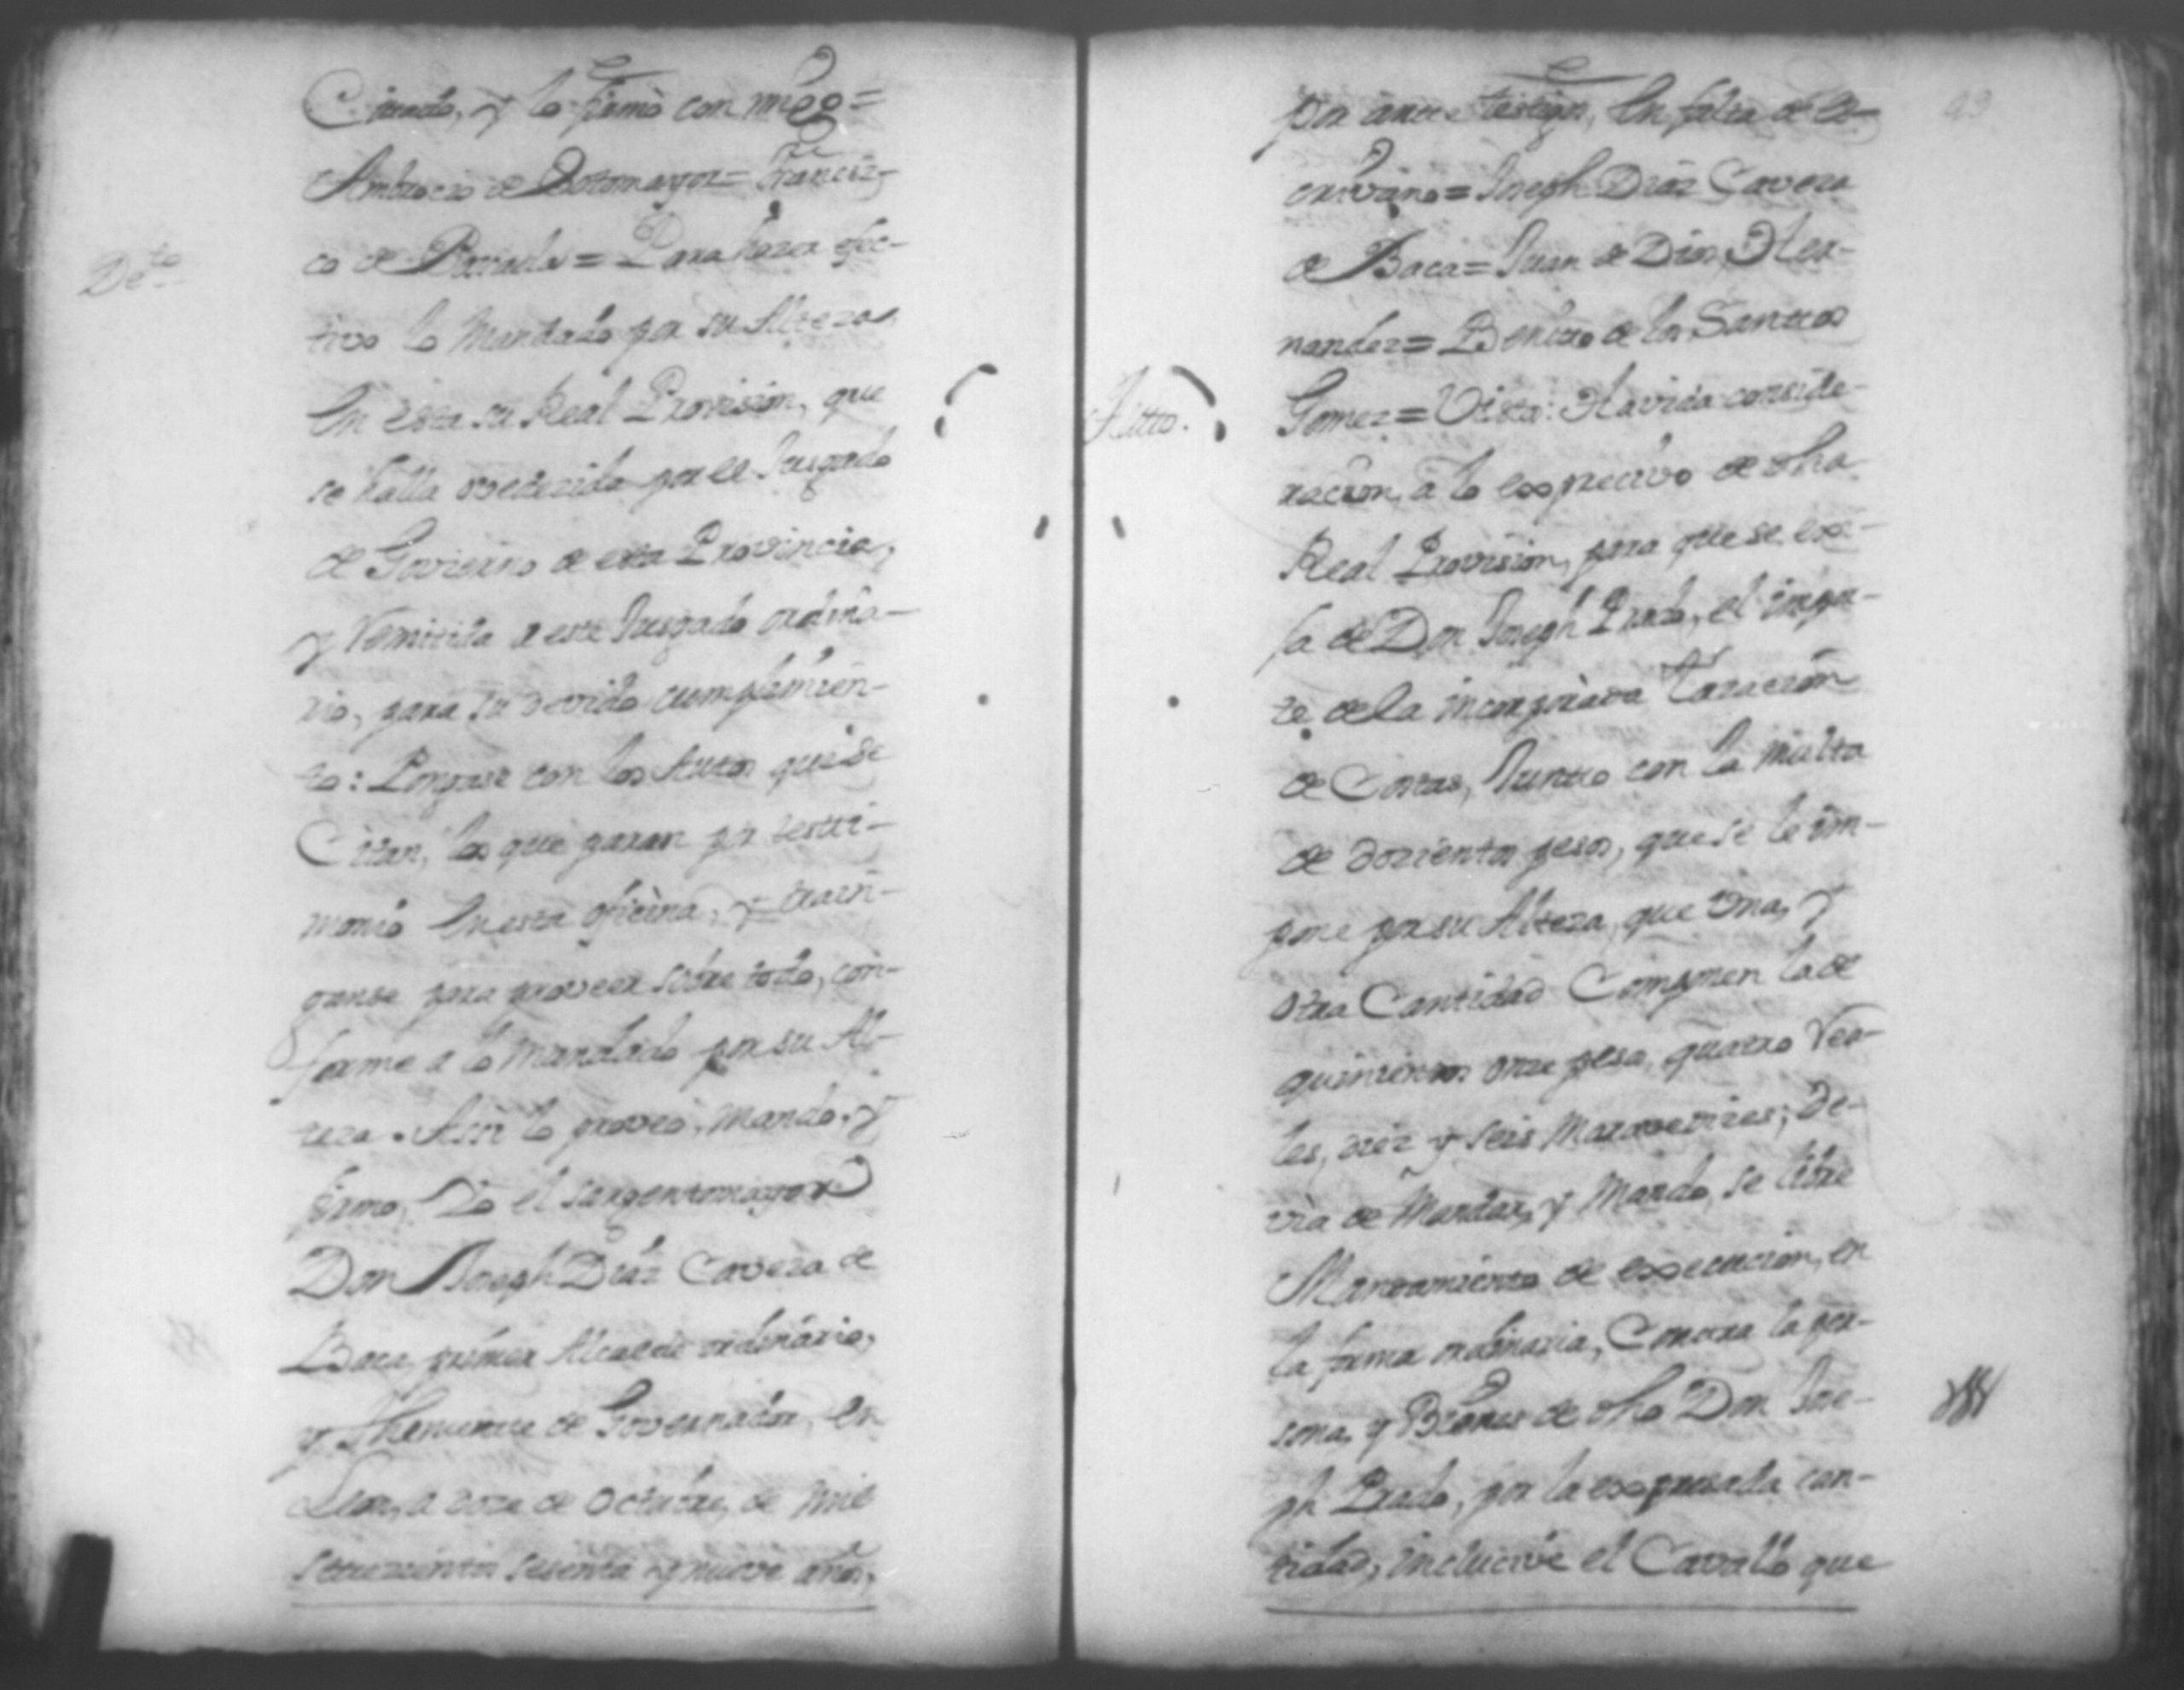 Citando, y lo firmò con migo=
Ambrocio de Sotomayor= Francis-
co de Parada= Para hazer efec-
Dto.
tivo lo Mandado por su Alteza
en esta su Real Provision, que
se halla ovedezida por el Jusgado
de Govierno de esta Provincia,
y Remitida a este Jusgado ordina-
rio, para su devido cumplimien-
to: Pongase con los Autos que se
Citan, los que paran por testti-
monio en esta oficina, y train-
ganse para proveer sobre todo, con-
forme a lo Mandado por su Al-
teza. Assi lo proveò, mandò, y
firmò, Yo el sargentomayor
Don Joseph Diaz Caveza de
Baca, primer Alcalde ordinario,
y Theniente de Governador, en
Leon, a doze de Octubre, de mil
settezientos sesenta y nueve años,
por ante testigos, en falta de es-
crivano= Joseph Diaz Caveza
de Baca= Juan de Dios Her-
nandez= Benito de los Santtos
Autto.
Gomez= Vista: Havida conside-
racion, a lo expecivo de dha
Real Provision, para que se exi-
ja de Don Joseph Prado, el impor-
te de la incorporada tazacion
de Costas, Juntto con la multa
de dozientos pesos, que se le im-
pone por su Alteza, que una, y
otra Cantidad Componen la de
quinientos onze pesos, quatro Rea-
les, diez y seis Maravedizes; de-
via de Mandar, y Mandò, se libre
Mandamiento de execucion, en
la forma ordinaria, Contra la per-
sona, y Bienes de dho Don Jose-
ph Prado, por la expresada can-
tidad, inclucive el Cavallo que